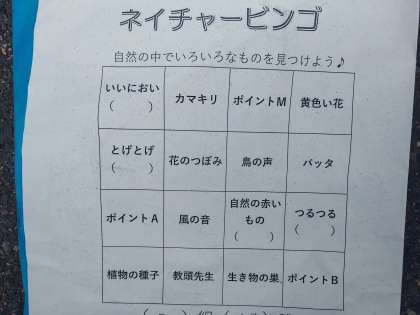 ネイチャービンゴ
自然の中でいろいろなものを見つけよう♪
いいにおい
(　　)
カマキリ
ポイントM
黄色い花
とげとげ
(　　)
花のつぼみ
鳥の声
バッタ
ポイントA
風の音
自然の赤い
もの
(　　)
つるつる
(　　)
植物の種子
教頭先生
生き物の巣
ポイントB